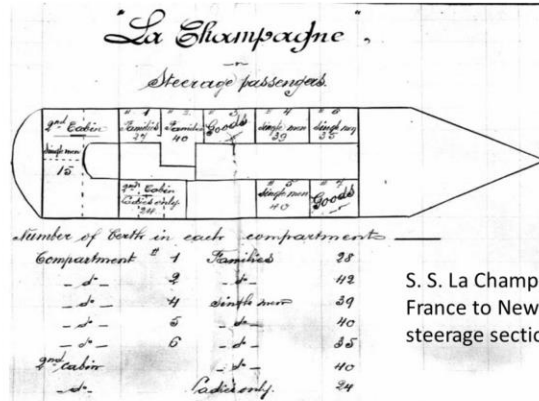 "La Champagne",
Steerage passengers.
2nd Cabin
single men
15
# 1
Families
27
# 2
Families
40
# 3
Goods
# 4
single men
39
# 6
Singl men
35
2nd Cabin
Ladies only
24
# 5
single men
40
# 7
Goods
Number of berth in each compartments
Compartment # 1 Families 28
- do - 2 - do - 42
- do - 4 Single men 39
- do - 5 - do - 40
- do - 6 - do - 35
2nd cabin - do - 40
- do - Ladies only. 24
S. S. La Champ
France to New
steerage sectio